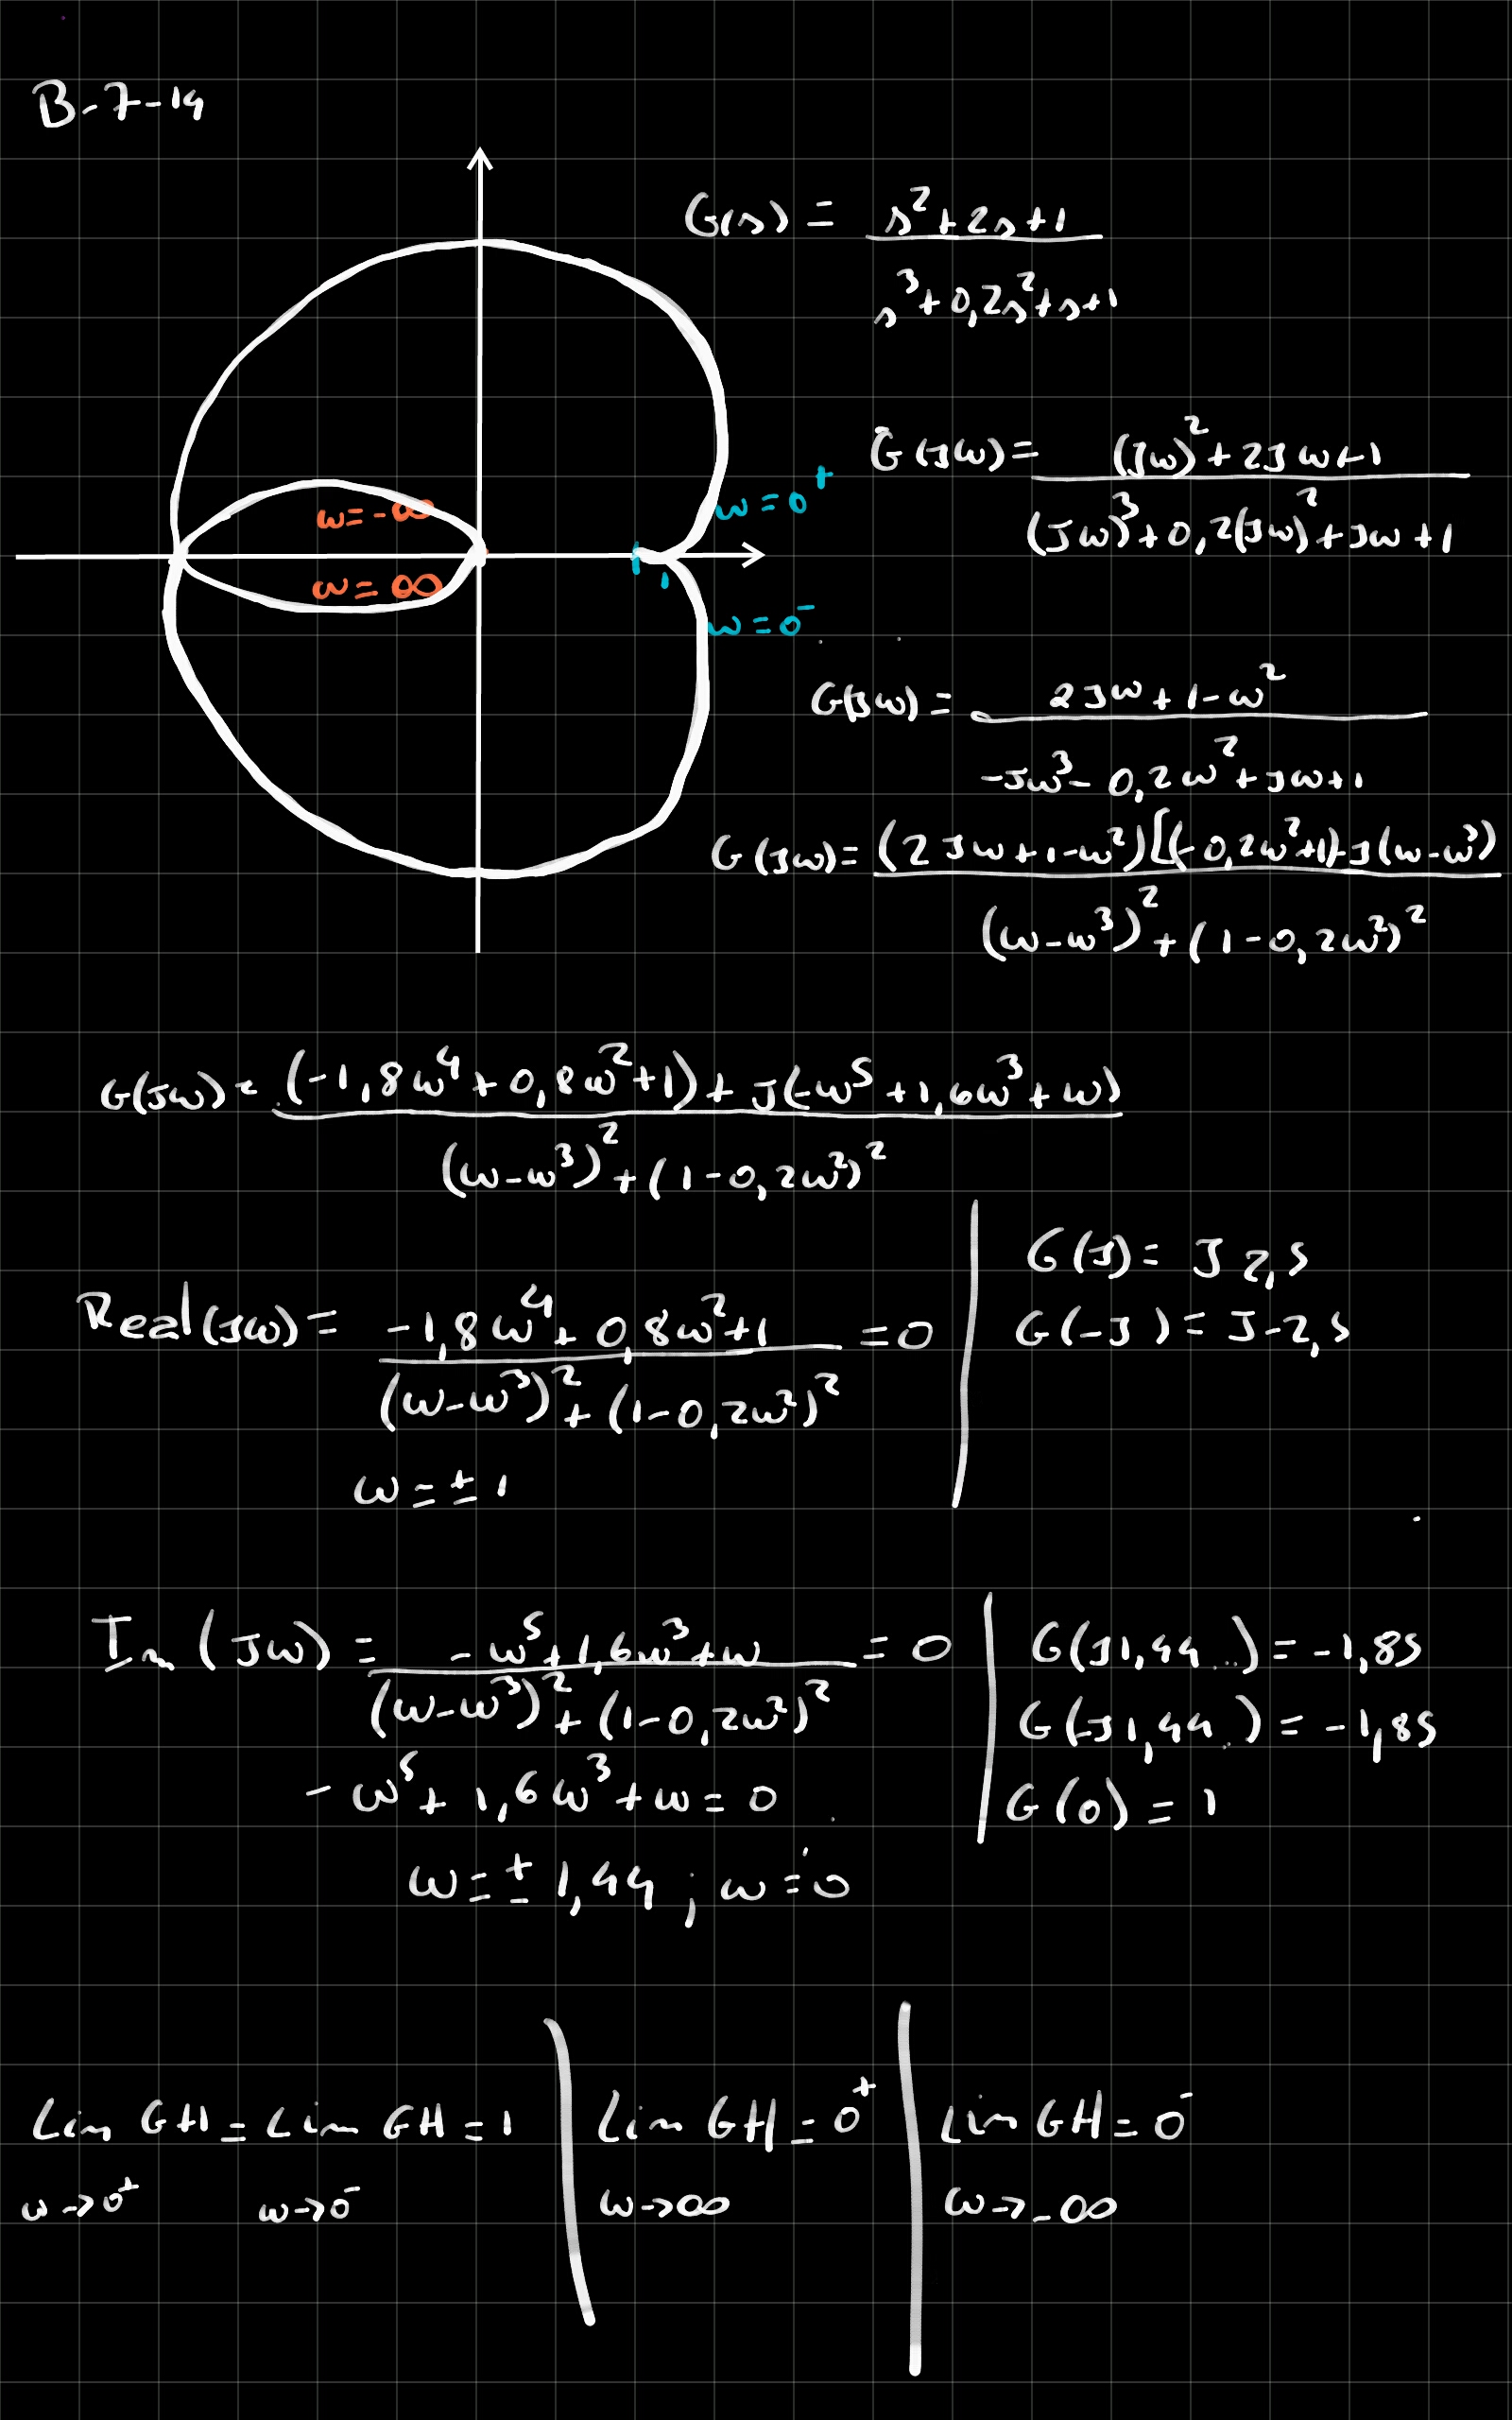 B-7-14
G(s) = (s²+2s+1)/(s³+0,2s²+s+1)
G(Jω) = ((Jω)²+2Jω+1)/((Jω)³+0,2(Jω)²+Jω+1)
ω=0⁺
ω=-∞
ω=∞
1
ω=0⁻
G(Jω) = (2Jω+1-ω²)/(-Jω³-0,2ω²+Jω+1)
G(Jω) = (2Jω+1-ω²)[(-0,2ω²+1)-J(ω-ω³)/((ω-ω³)²+(1-0,2ω²)²)
G(Jω) = ((-1,8ω⁴+0,8ω²+1)+J(-ω⁵+1,6ω³+ω))/((ω-ω³)²+(1-0,2ω²)²)
Real(Jω) = (-1,8ω⁴+0,8ω²+1)/((ω-ω³)²+(1-0,2ω²)²) = 0
ω=±1
G(J) = J2,5
G(-J) = J-2,5
Im(Jω) = (-ω⁵+1,6ω³+ω)/((ω-ω³)²+(1-0,2ω²)²) = 0
-ω⁵+1,6ω³+ω=0
ω=±1,44 ; ω=0
G(J1,44..) = -1,85
G(-J1,44..) = -1,85
G(0) = 1
Lim GH = Lim GH = 1
ω→0⁺ ω→0⁻
Lim GH = 0⁺
ω→∞
Lim GH = 0⁻
ω→-∞